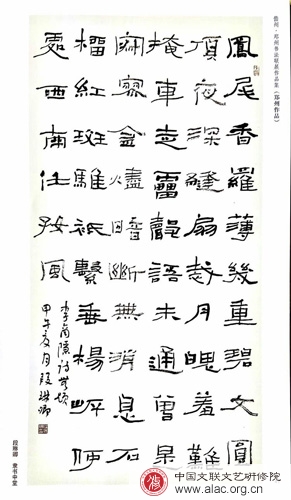 鳳尾香羅薄幾重碧文圓
頂夜深縫扇裁月魄羞難
掩車走靁聲語未通曾是
寂寥金燼暗斷無消息石
榴紅斑騅祇繫垂楊岸何
處西南任好風
李商隱詩無題
甲午夏月段琳卿
州·郑州书法联展作品集(郑州作品)
段琳卿 隶书中堂
中国文联文艺研修院
www.alac.org.cn